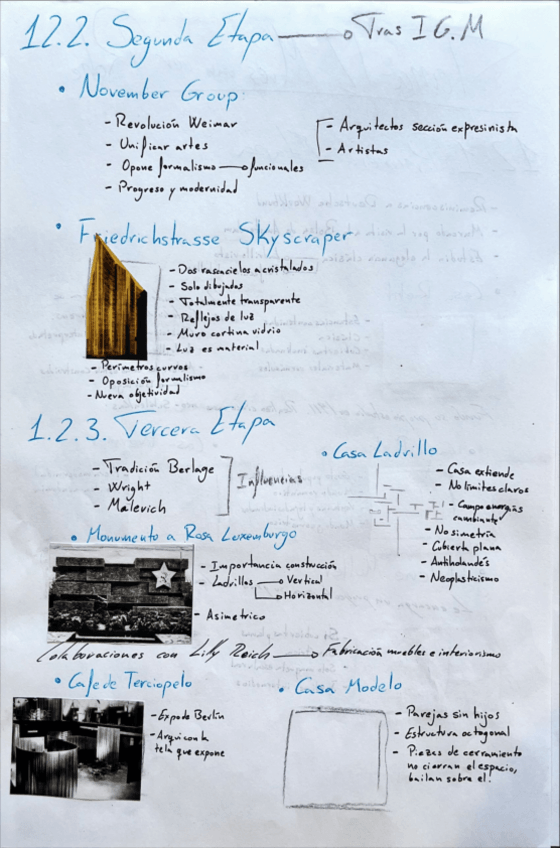 1.2.2. Segunda Etapa → Tras I G.M
• November Group:
- Revolución Weimar
- Unificar artes
- Opone formalismo → funcionales
- Progreso y modernidad
- Arquitectos sección expresinista
- Artistas
• Friedrichstrasse Skyscraper
- Dos rascacielos acristalados
- Solo dibujados
- Totalmente transparente
- Reflejos de luz
- Muro cortina vidrio
- Luz es material
- Perímetros curvos
- Oposición formalismo
- Nueva objetividad
1.2.3. Tercera Etapa
- Tradición Berlage
- Wright
- Malevich
Influencias
• Casa Ladrillo
- Casa extiende
- No limites claros
- Campo energías
cambiante
- No simetría
- Cubierta plana
- Antiholandés
- Neoplasticismo
• Monumento a Rosa Luxemburgo
- Importancia construcción
- Ladrillos → Vertical
→ Horizontal
- Asimetrico
Colaboraciones con Lilly Reich → Fabricación muebles e interiorismo
• Cafe de Terciopelo
- Expo de Berlín
- Arqui con la
tela que expone
• Casa Modelo
- Parejas sin hijos
- Estructura octogonal
- Piezas de cerramiento
no cierran el espacio,
bailan sobre el!